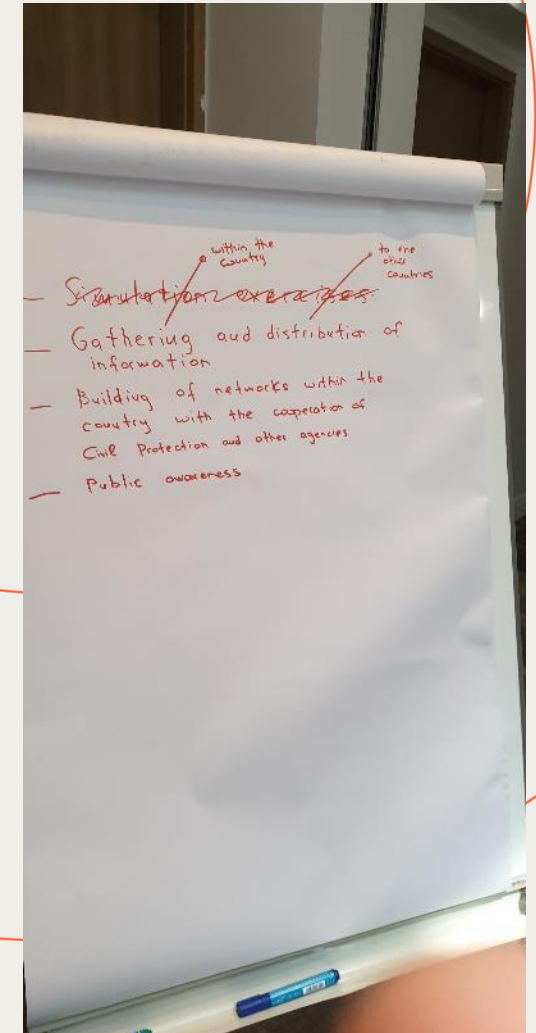 within the
country
to one
other
countries
— Simulation exercises
— Gathering and distribution of
information
— Building of networks within the
country with the cooperation of
Civil Protection and other agencies
— Public awareness